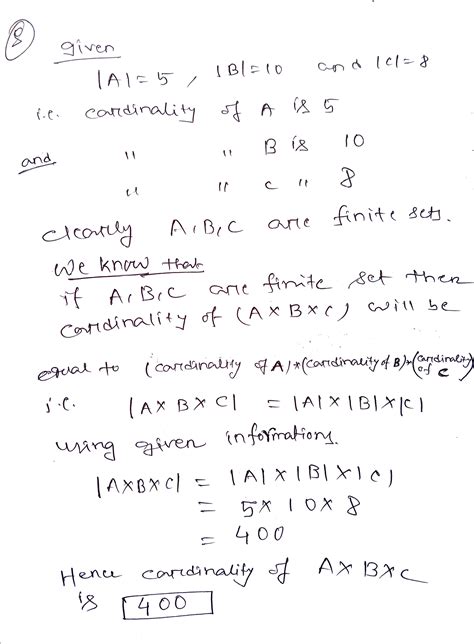 8
given
|A| = 5 , |B| = 10 and |C| = 8
i.e. cardinality of A is 5
and " " B is 10
" " C " 8
clearly A, B, C are finite sets.
we know that
if A, B, C are finite set then
cardinality of (A × B × C) will be
equal to (cardinality of A) * (cardinality of B) * (cardinality of C)
i.e. |A × B × C| = |A| × |B| × |C|
using given informations.
|A×B×C| = |A| × |B| × |C|
= 5 × 10 × 8
= 400
Hence cardinality of A × B × C
is 400